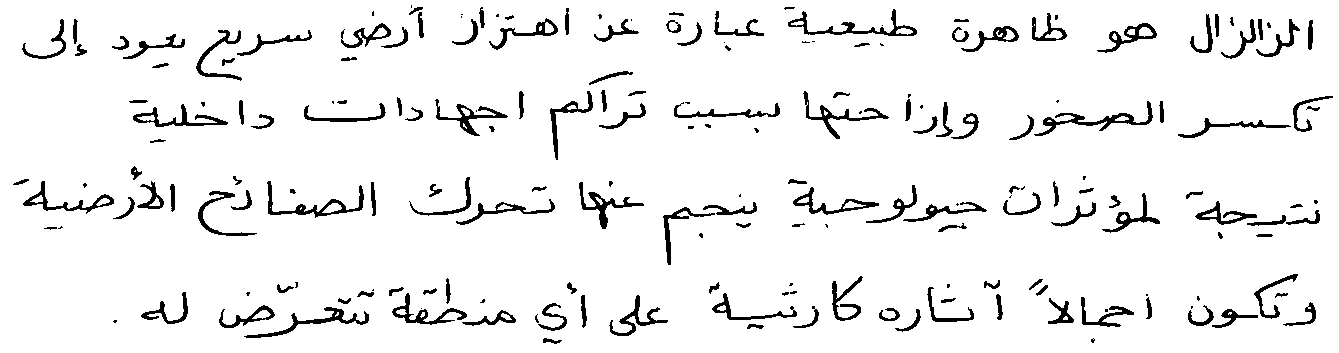 الزلزال هو ظاهرة طبيعية عبارة عن اهتزاز أرضي سريع يعود إلى
تكسر الصخور وإزاحتها بسبب تراكم اجهادات داخلية
نتيجة لمؤثرات جيولوجية ينجم عنها تحرك الصفائح الأرضية
وتكون اجمالاً آثاره كارثية على أي منطقة تتعرّض له .